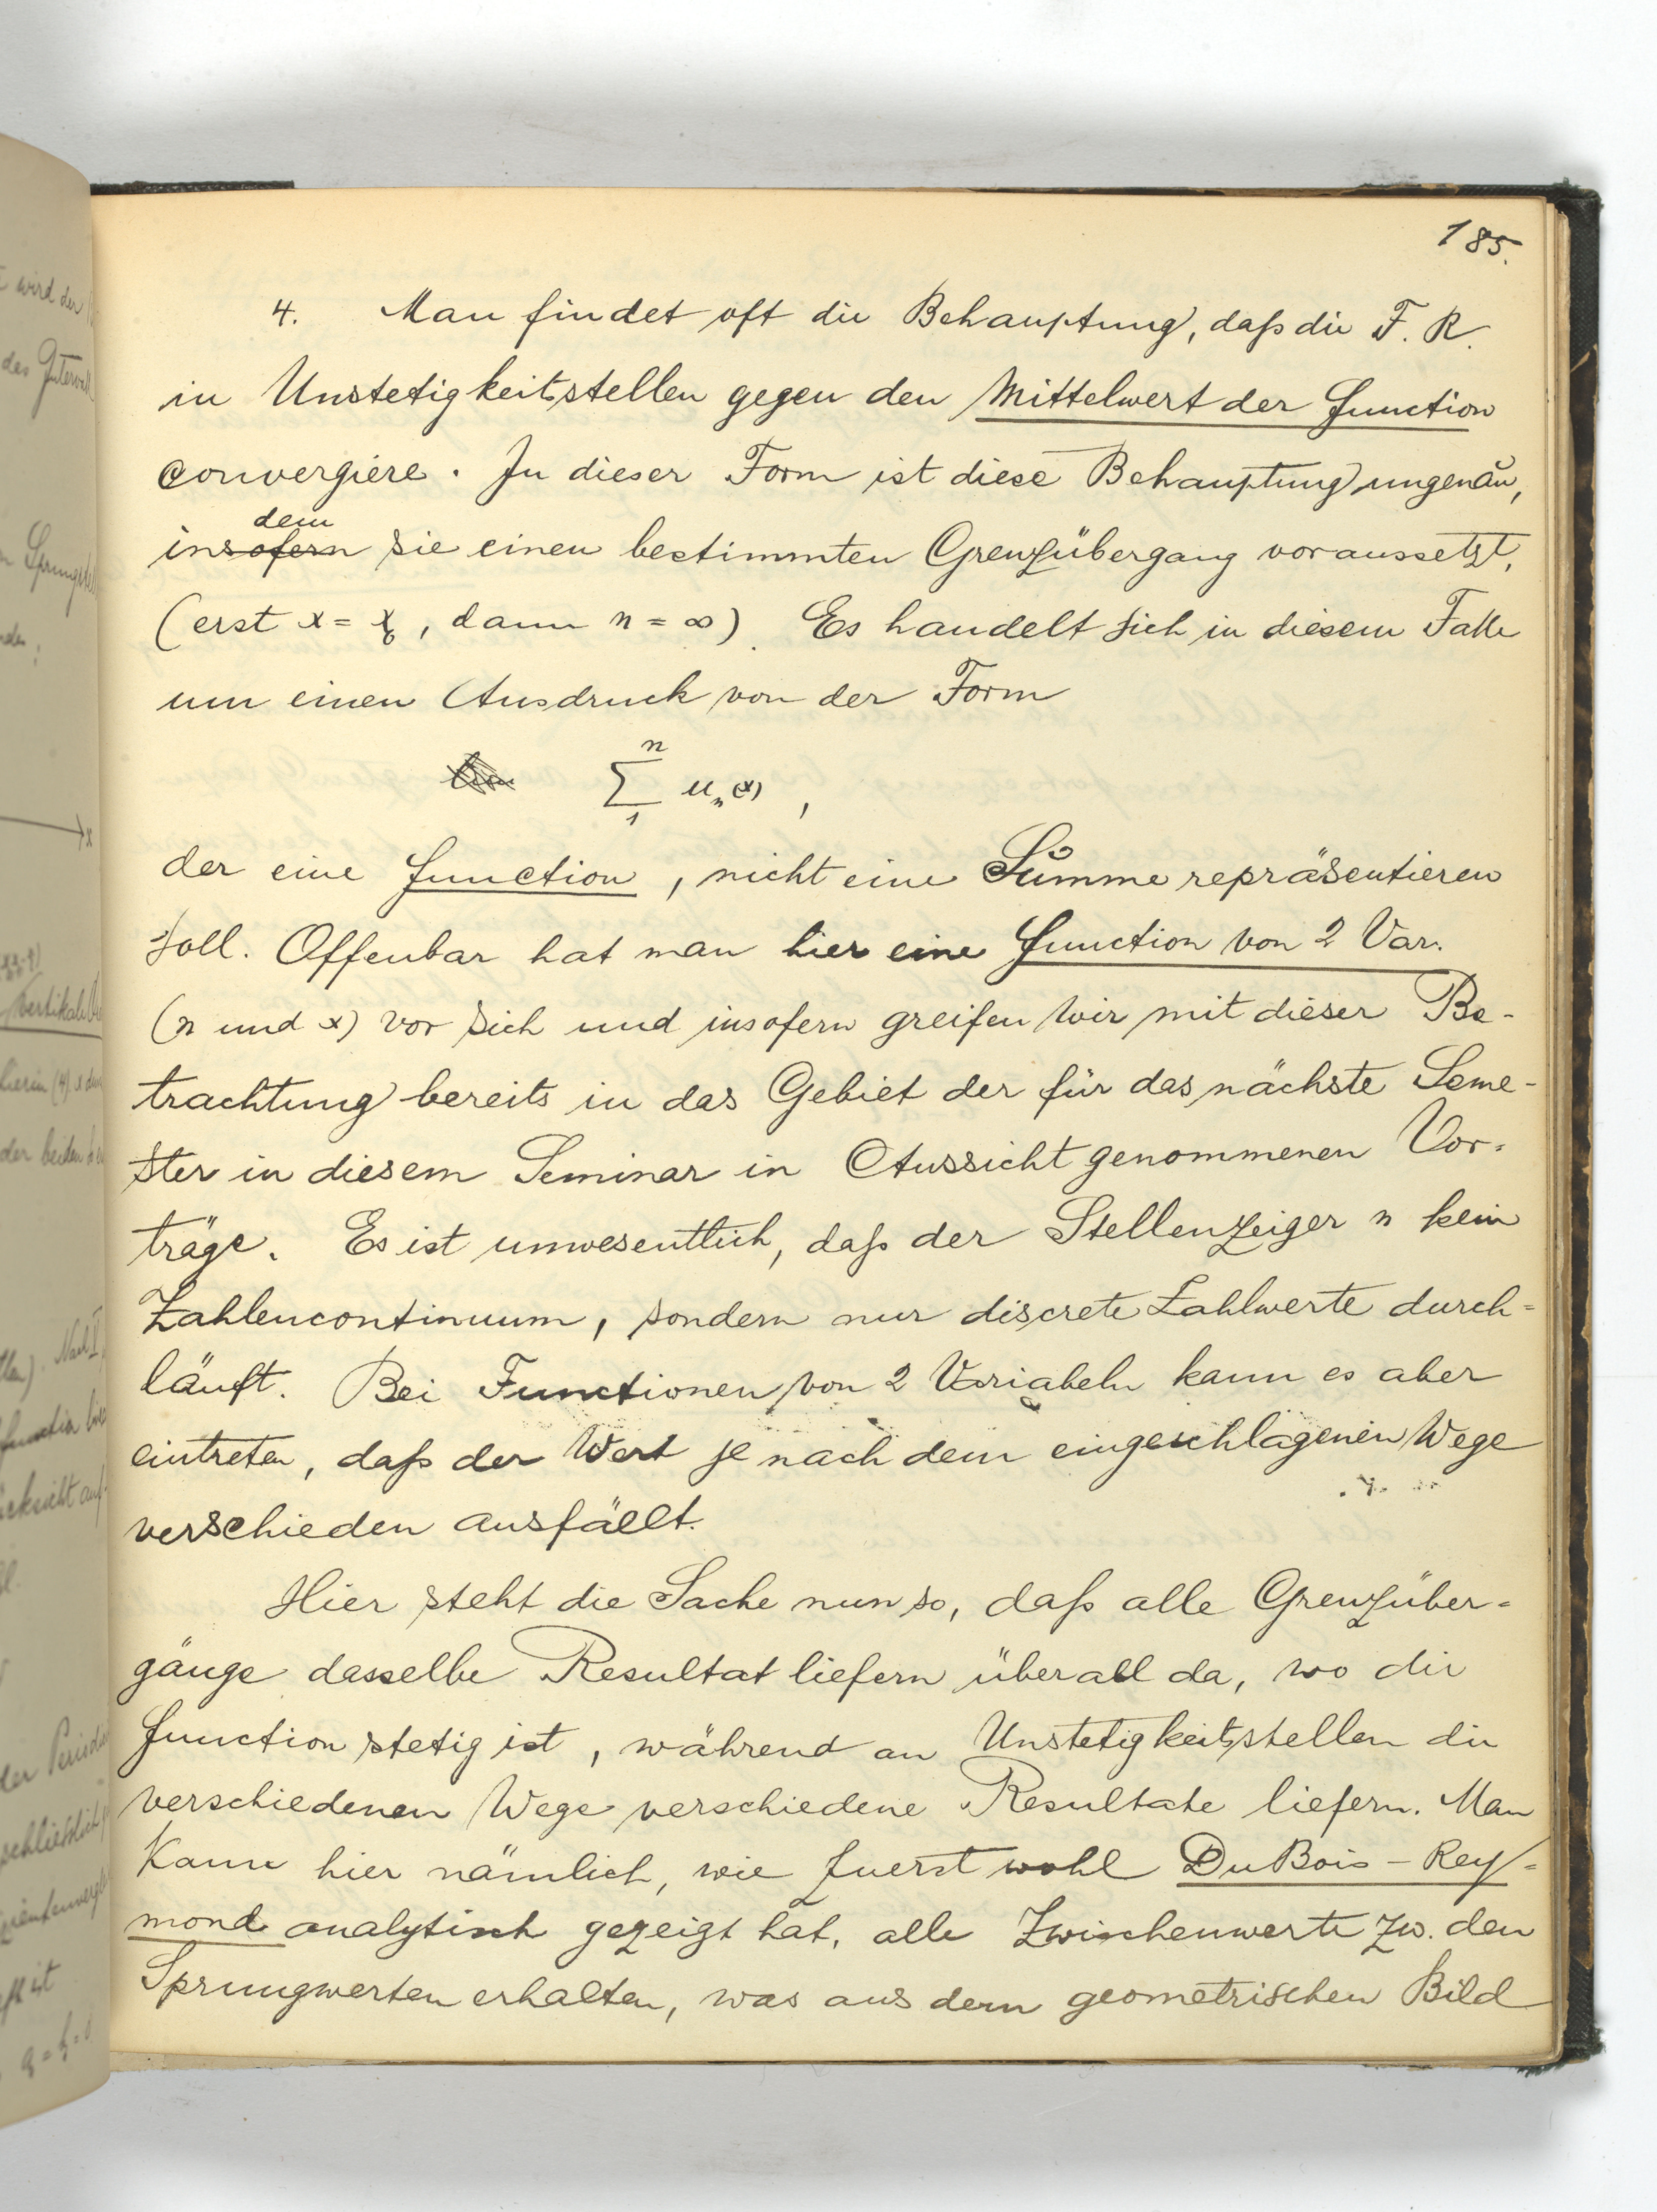 185.
4. Man findet oft die Behauptung, daß die F. R.
in Unstetigkeitsstellen gegen den Mittelwert der Function
convergiere. In dieser Form ist diese Behauptung ungenau,
dem
insofern sie einen bestimmten Grenzübergang voraussetzt,
(erst x = x₀, dann n = ∞). Es handelt sich in diesem Falle
um einen Ausdruck von der Form
n
lim ∑ uₙ(x) ,
1
der eine Function, nicht eine Summe repräsentieren
soll. Offenbar hat man hier eine Function von 2 Var.
(n und x) vor sich und insofern greifen wir mit dieser Be-
trachtung bereits in das Gebiet der für das nächste Seme-
ster in diesem Seminar in Aussicht genommenen Vor-
träge. Es ist unwesentlich, daß der Stellenzeiger n kein
Zahlencontinuum, sondern nur discrete Zahlwerte durch=
läuft. Bei Functionen von 2 Variabeln kann es aber
eintreten, daß der Wert je nach dem eingeschlagenen Wege
verschieden ausfällt.
Hier steht die Sache nun so, daß alle Grenzüber=
gänge dasselbe Resultat liefern überall da, wo die
Function stetig ist, während an Unstetigkeitsstellen die
verschiedenen Wege verschiedene Resultate liefern. Man
kann hier nämlich, wie zuerst wohl Du Bois-Rey=
mond analytisch gezeigt hat, alle Zwischenwerte zw. den
Sprungwerten erhalten, was aus dem geometrischen Bild
wird der
des Intervall
der beiden
Rücksicht auf